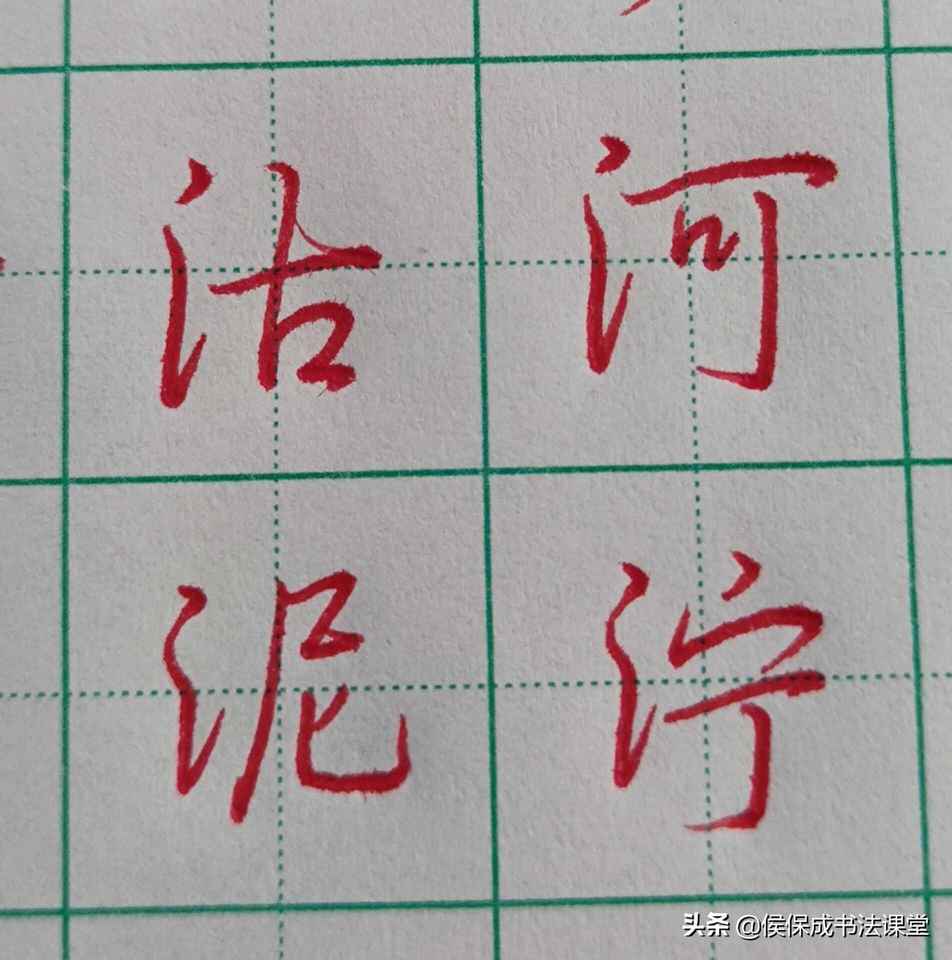 沽河
泥泞
头条 @侯保成书法课堂